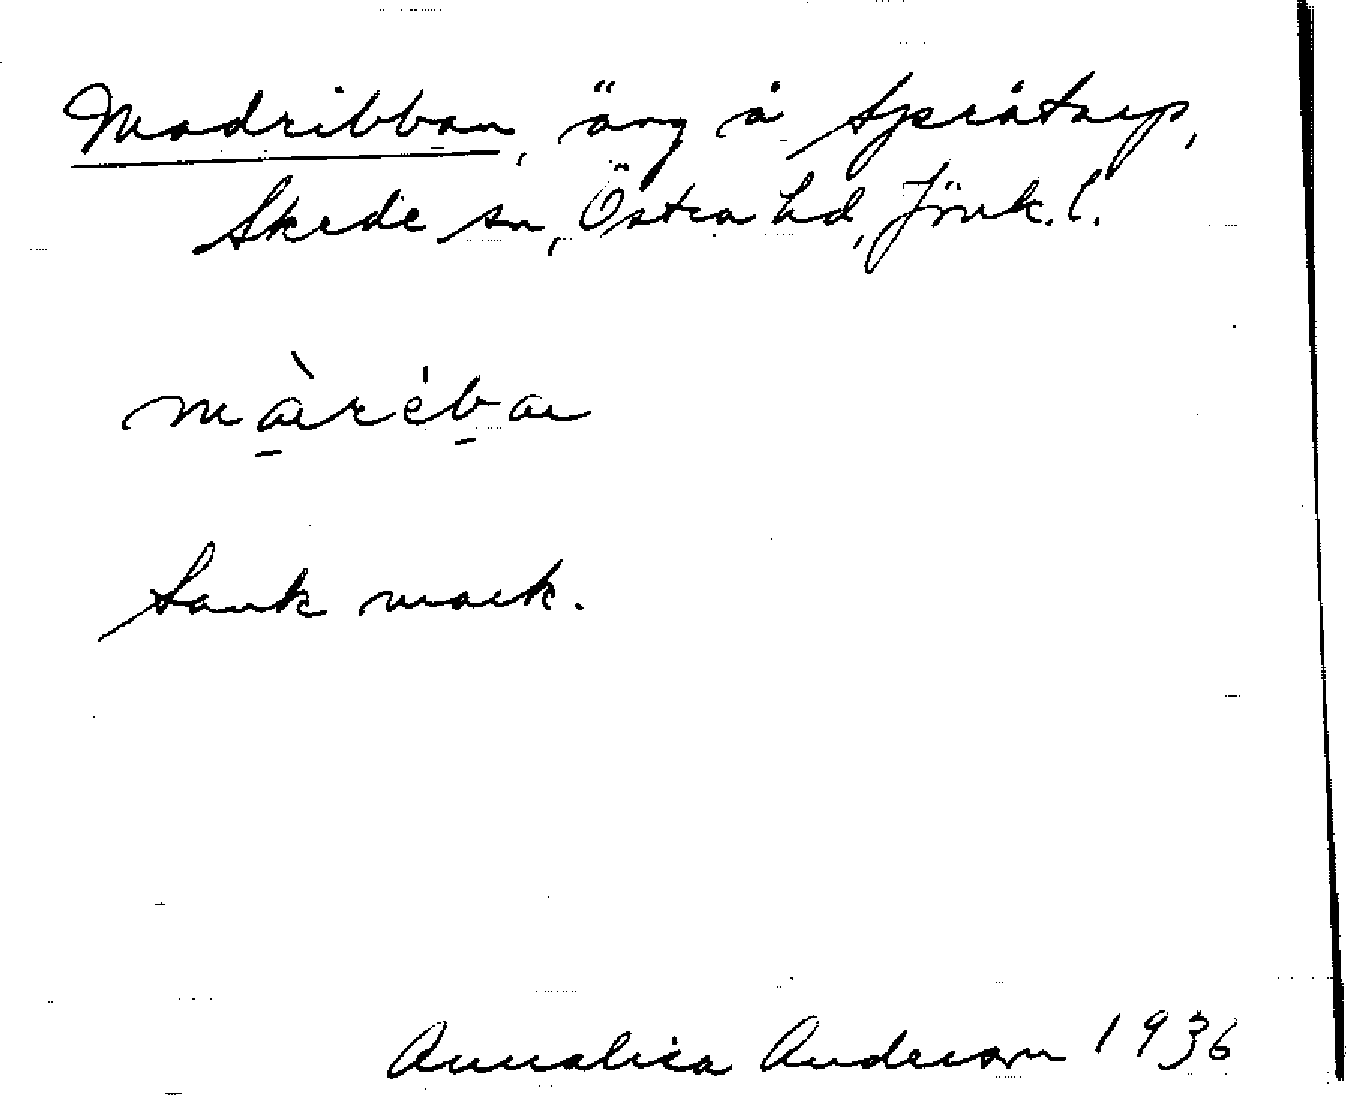 Madribban, äng å Språtarp,
Skede sn, Östra hd, Jönk. l.
màrìban
Sank mark.
Annalisa Anderson 1936